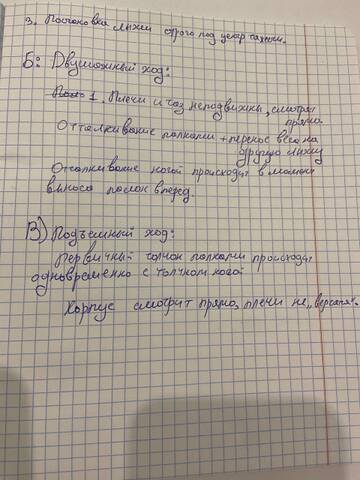 3. Постановка лыжи строго под центр тяжести.
Б: Двушажный ход:
1. Плечи и таз неподвижны, смотрят
прямо
Отталкивание палками + перенос веса на
другую лыжу
Отталкивание ногой происходит в момент
выноса палок вперед.
В) Подъемный ход:
Первичный толчок палками происходит
одновременно с толчком ногой
Корпус смотрит прямо, плечи не